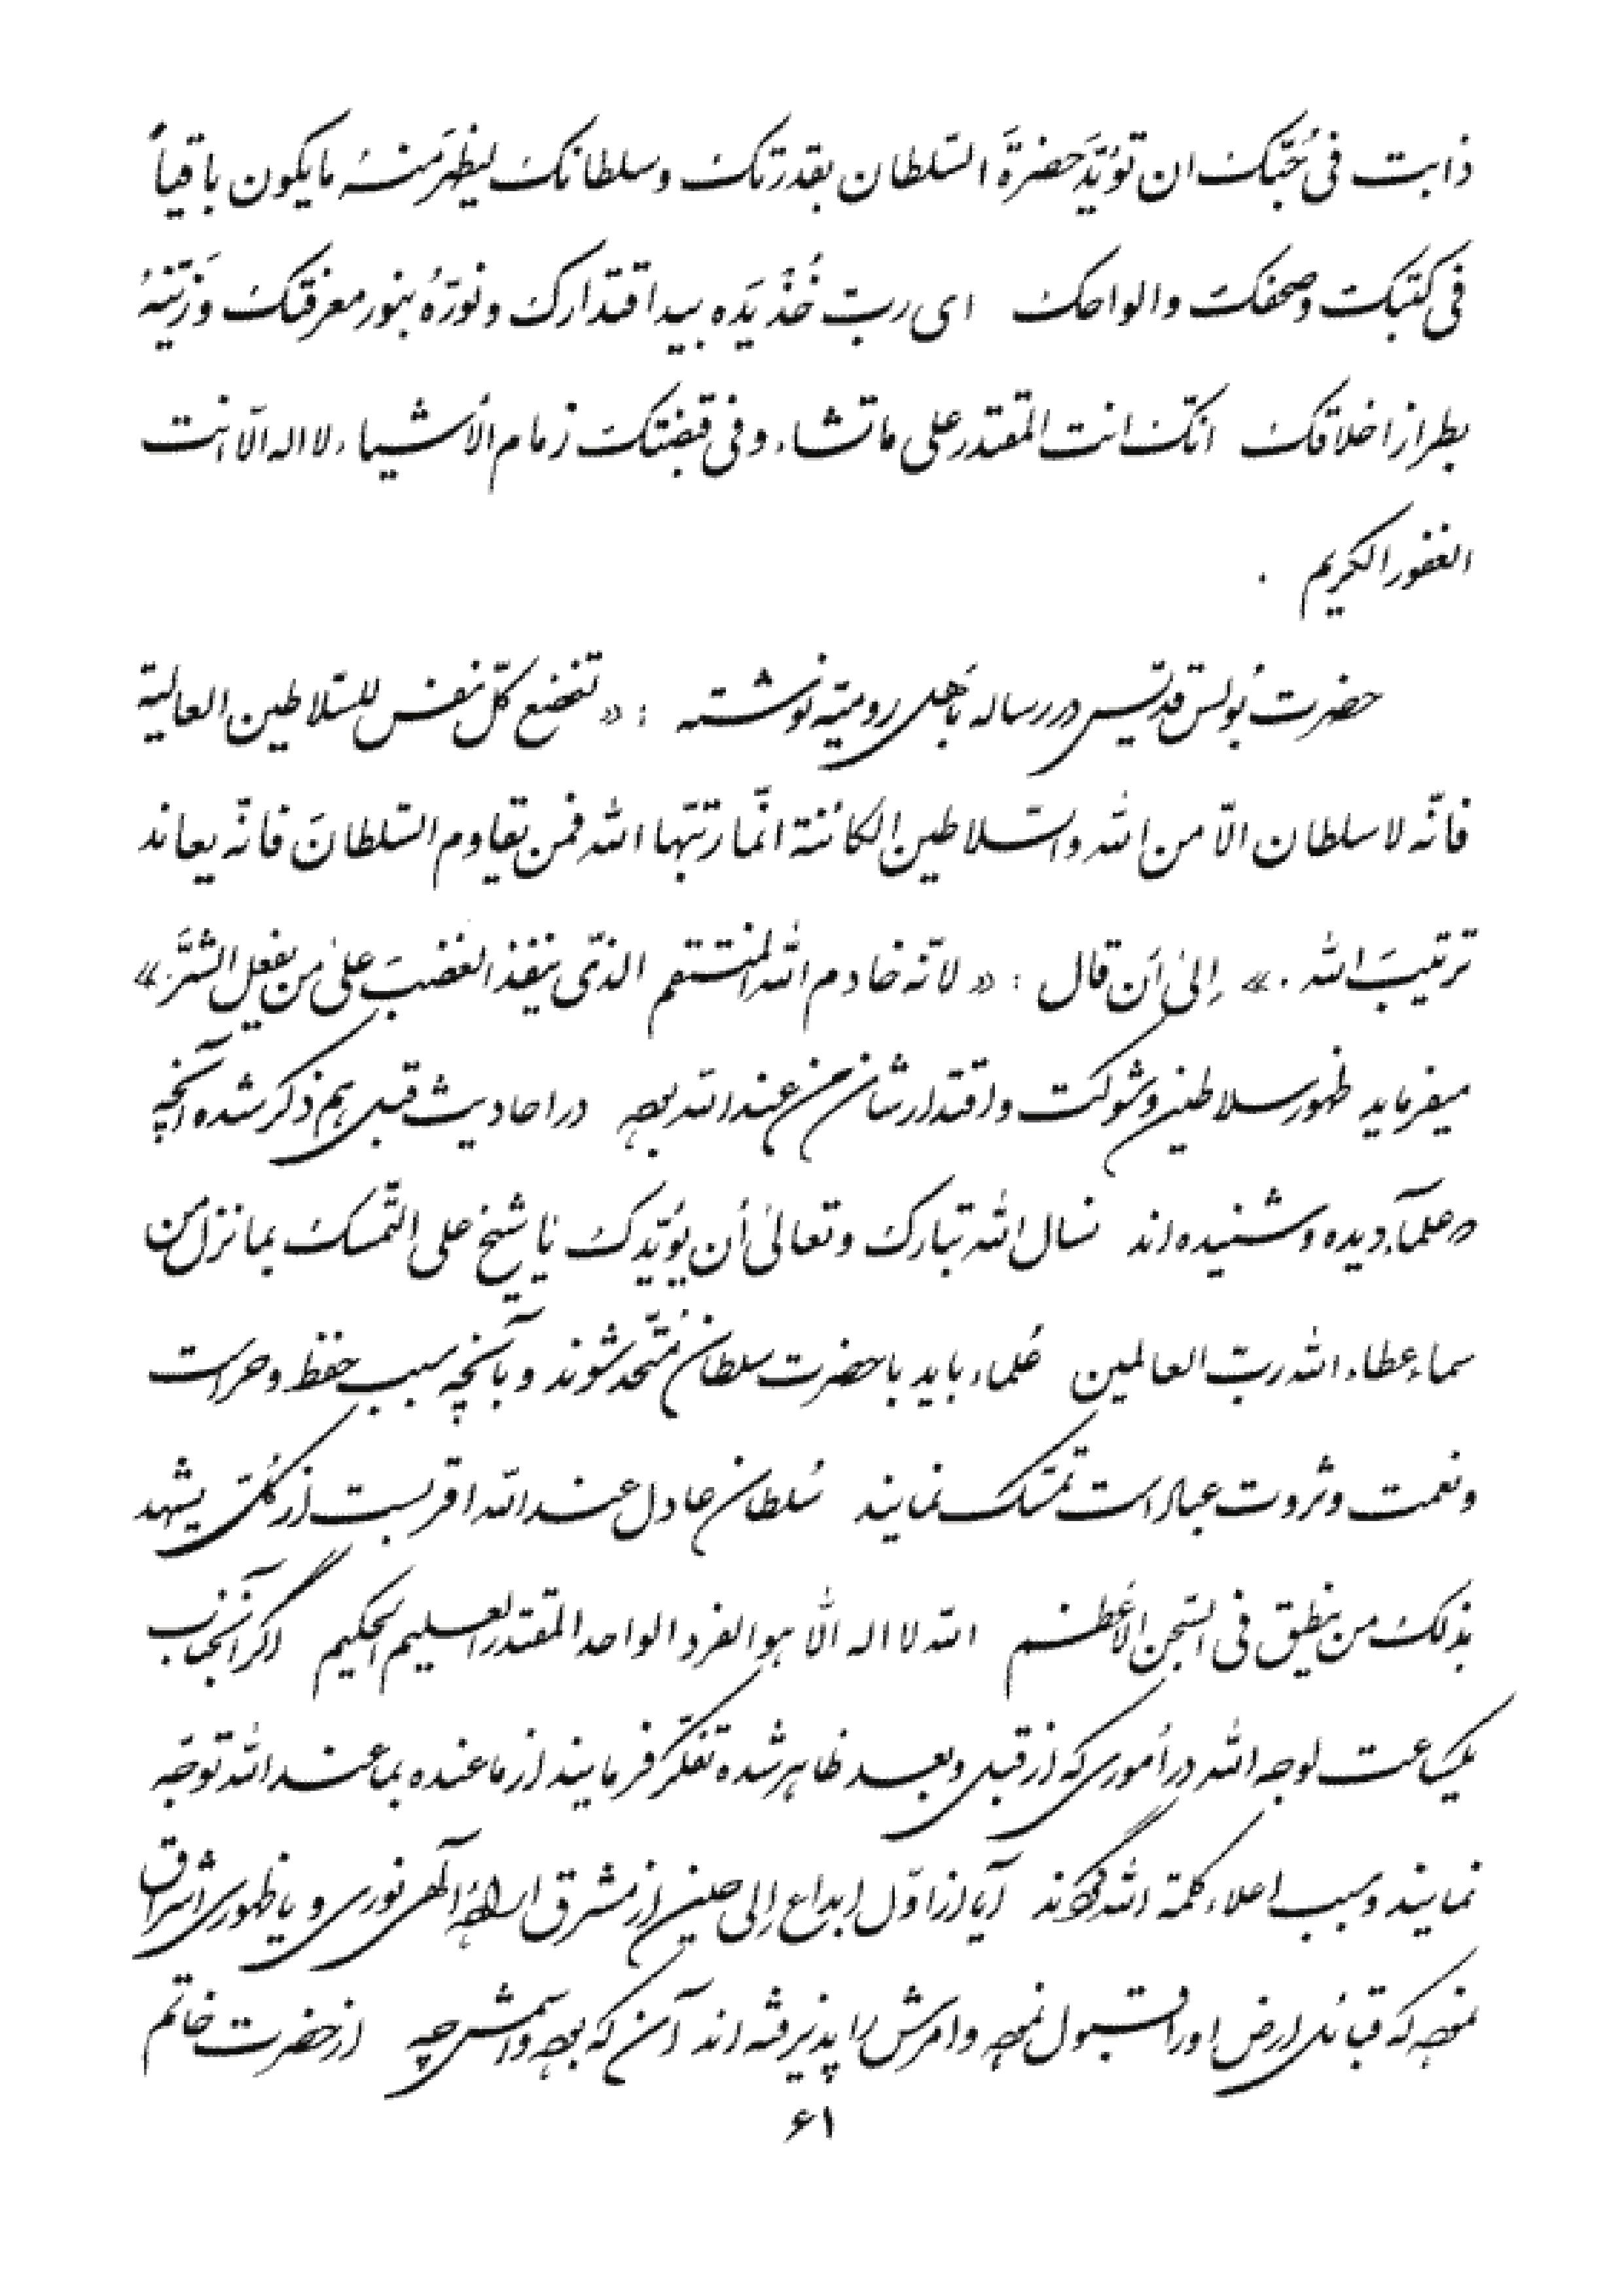 ذابت فی حُبّک ان تؤیّدَ حضرةَ السّلطان بقدرتک و سلطانک لیظهرَ منهُ ما یکون باقیاً
فی کتبک و صحفک و الواحک ای ربّ خُذْ یَدَه بید اقتدارک و نوّرهُ بنور معرفتک وَ زیّنهُ
بطراز اخلاقک انّک انت المقتدر علی ما تشاء و فی قبضتک زمام الأشیاء لا اله الّا انت
الغفور الکریم .
حضرت بُولس قدّیس در رساله بأهل رومیّه نوشته : « تخضع کلّ نفس للسّلاطین العالیة
فانّه لا سلطان الّا من اللّه و السّلاطین الکائنة انّما رتّبها اللّه فمن یقاوم السّلطانَ فانّه یعاند
ترتیبَ اللّه . » إلیٰ أن قال : « لانّه خادم اللّه المنتقم الذّی ینفذ الغضبَ علیٰ من یفعل الشّرَّ . »
میفرماید ظهور سلاطین و شوکت و اقتدارشان من عند اللّه بوده در احادیث قبل هم ذکر شده آنچه
علمآء دیده و شنیده‌اند نسال اللّه تبارک و تعالیٰ أن یؤیّدک یا شیخ علی التّمسّک بما نزل من
سماء عطاء اللّه ربّ العالمین عُلماء باید با حضرت سلطان مُتّحد شوند و بآنچه سبب حفظ و حراست
و نعمت و ثروت عباد است تمسّک نمایند سُلطان عادل عند اللّه اقربست از کُلّ یشهد
بذلک من ینطق فی السّجن الأعظم اللّه لا اله الّا هو الفرد الواحد المقتدر العلیم الحکیم اگر آنجناب
یکساعت لوجه اللّه در اُموری که از قبل و بعد ظاهر شده تفکّر فرمایند از ما عنده بما عند اللّه توجّه
نمایند و سبب اعلاء کلمة اللّه گردند آیا از اوّل إبداع إلی حین از مشرق ارادۀ الهی نوری و یا ظهوری اشراق
نموده که قبائل ارض او را قبول نموده و امرش را پذیرفته‌اند آن که بوده و اسمش چه از حضرت خاتم
۶۱